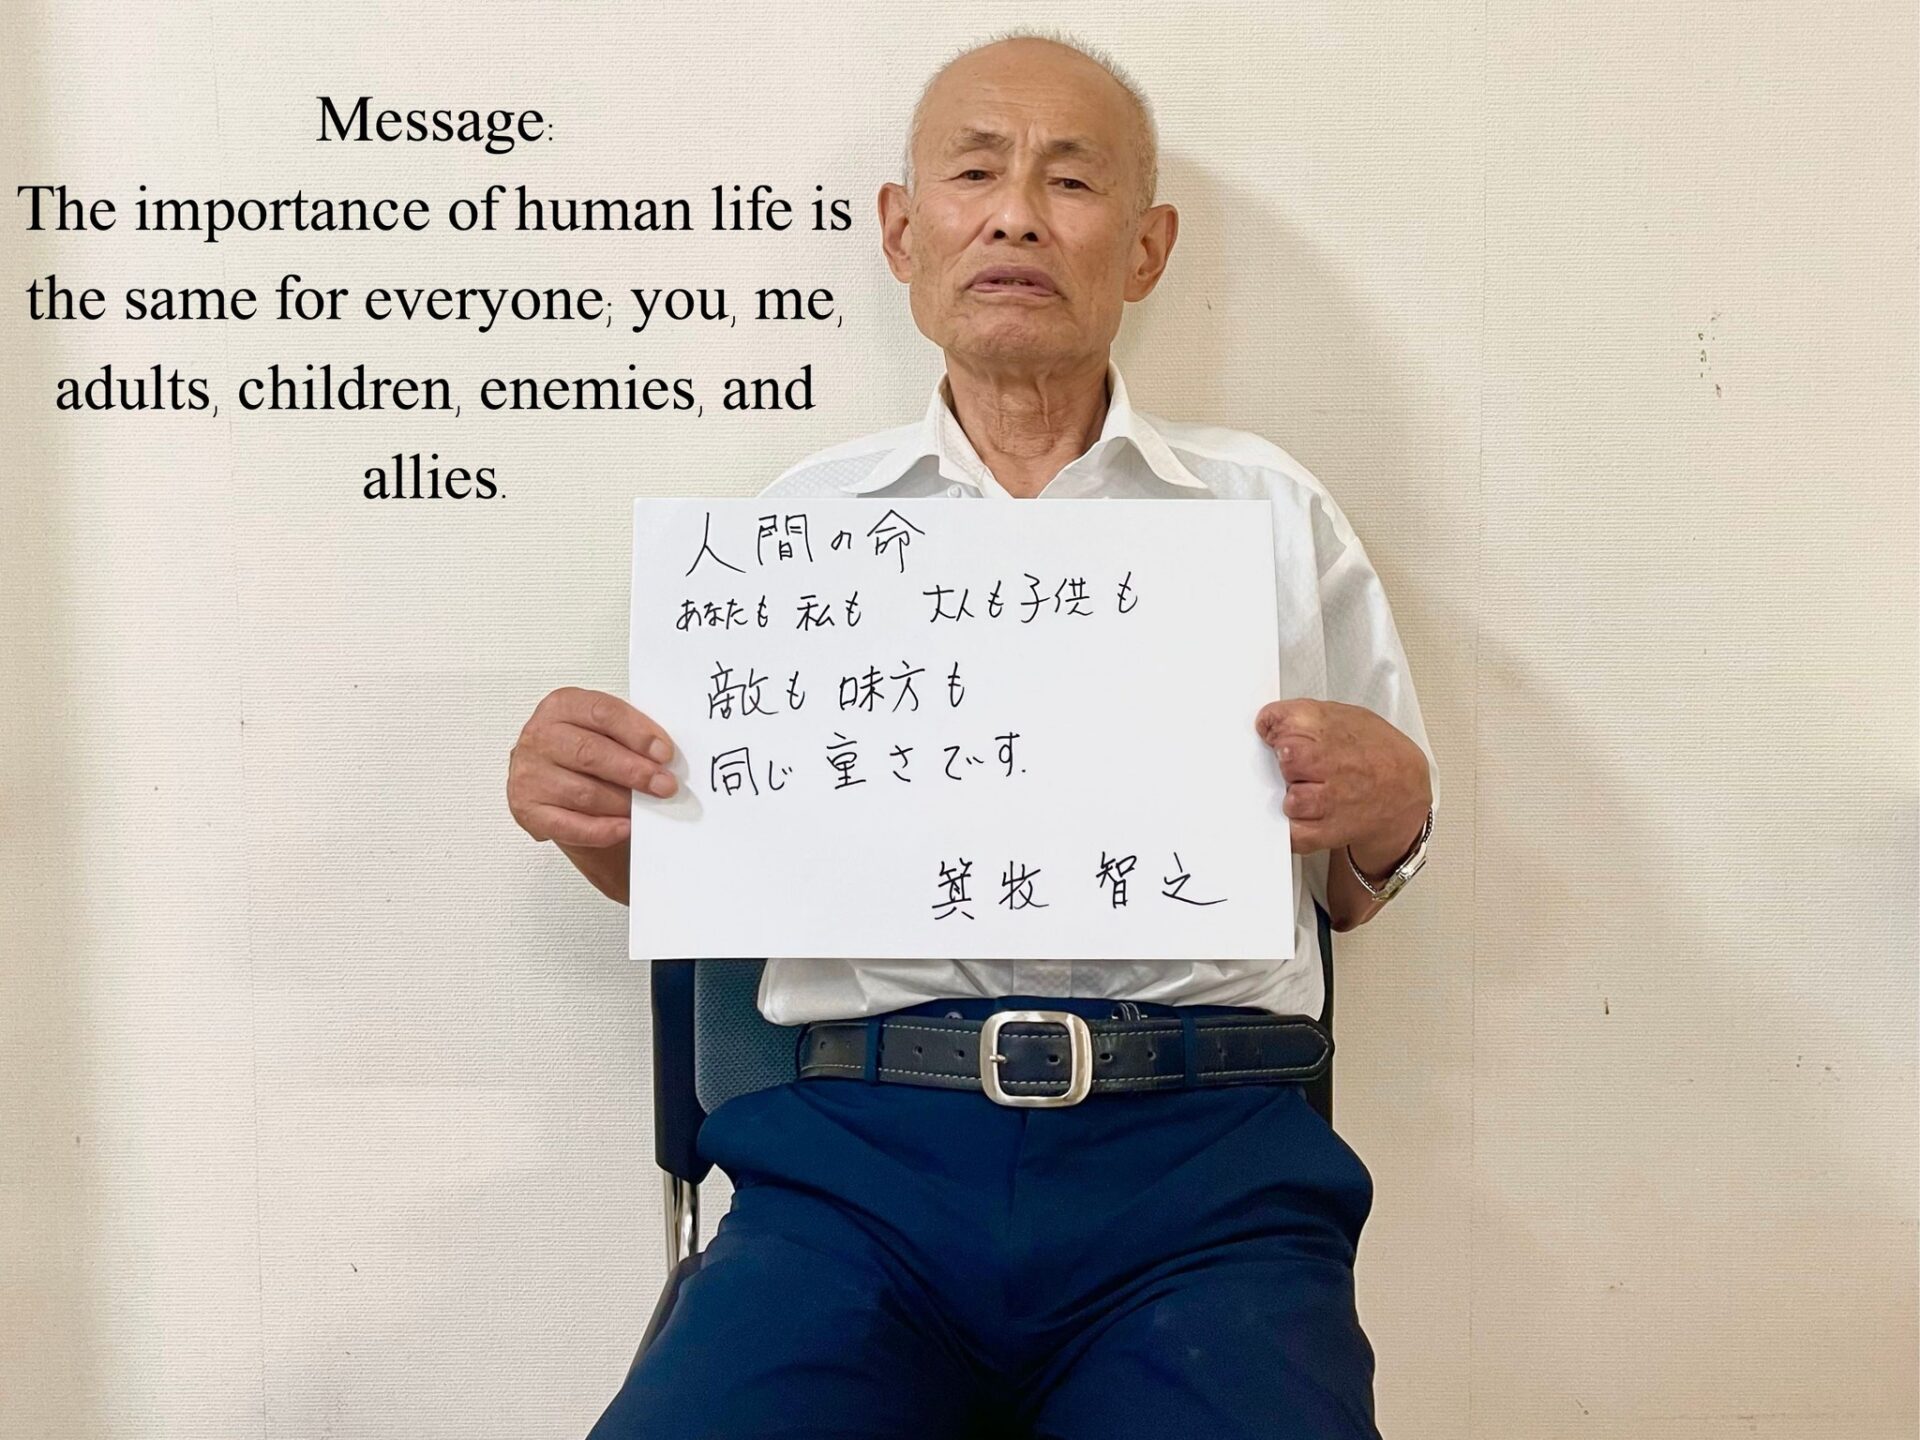 Message:
The importance of human life is
the same for everyone; you, me,
adults, children, enemies, and
allies.
人間の命
あなたも 私も 大人も子供も
敵も 味方も
同じ 重さです.
箕牧 智之